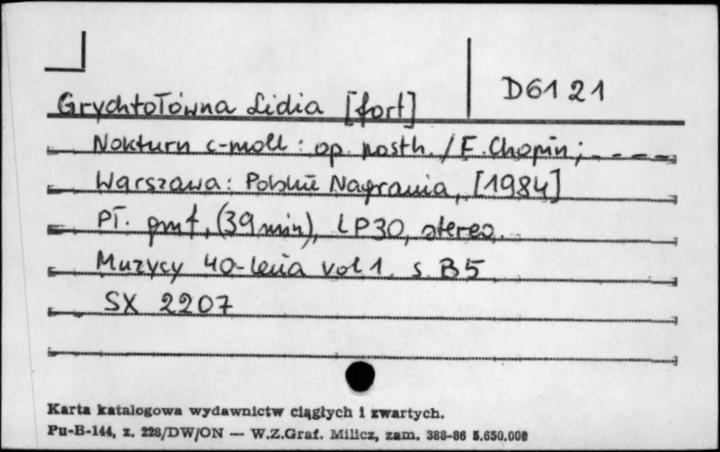 D61 21
Grychtołówna Lidia [fort]
Nokturn c-moll : op. posth. / F. Chopin ; - - - -
Warszawa : Polskie Nagrania, [1984]
Pł. gmf, (39 min), LP30, stereo.
Muzycy 40-lecia vol 1. s. B5
SX 2207
Karta katalogowa wydawnictw ciągłych i zwartych.
Pu-B-144, z. 228/DW/ON — W.Z.Graf. Milicz, zam. 388-86 5.650.000